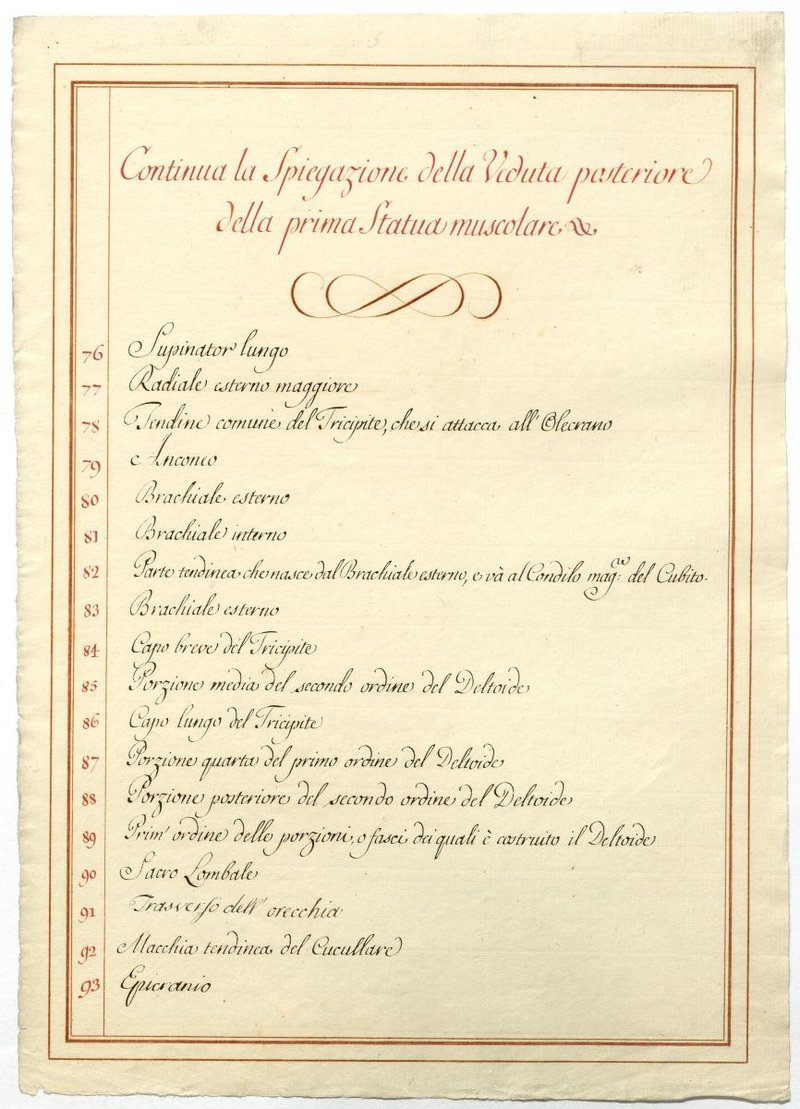 Continua la Spiegazione della Veduta posteriore
della prima Statua muscolare &
76 Supinator lungo
77 Radiale esterno maggiore
78 Tendine comune del Tricipite, che si attacca all' Olecrano
79 Anconeo
80 Brachiale esterno
81 Brachiale interno
82 Parte tendinea che nasce dal Brachiale esterno, e và al Condilo mag.re del Cubito.
83 Brachiale esterno
84 Capo breve del Tricipite
85 Porzione media del secondo ordine del Deltoide
86 Capo lungo del Tricipite
87 Porzione quarta del primo ordine del Deltoide
88 Porzione posteriore del secondo ordine del Deltoide
89 Prim' ordine delle porzioni, o fasci dei quali è costruito il Deltoide
90 Sacro Lombale
91 Trasverso dell' orecchia
92 Macchia tendinea del Cucullare
93 Epicranio